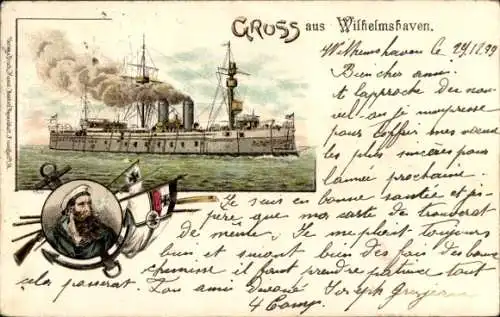 GRUSS aus Wilhelmshaven.
Wilhelmshaven le 29/12.99
Bien cher ami.
A l'approche du nou-
vel an je m'empresse
pour t'offrir mes voeux
les plus sincères pour
l'année prochaine.
Je suis en bonne santée et j'es-
père que ma carte te trouverat
de même. Je me plait toujours
bien et surout bien des fois des
il faut prendre patience tout
cela passerat. Ton ami Joseph
4 Comp.